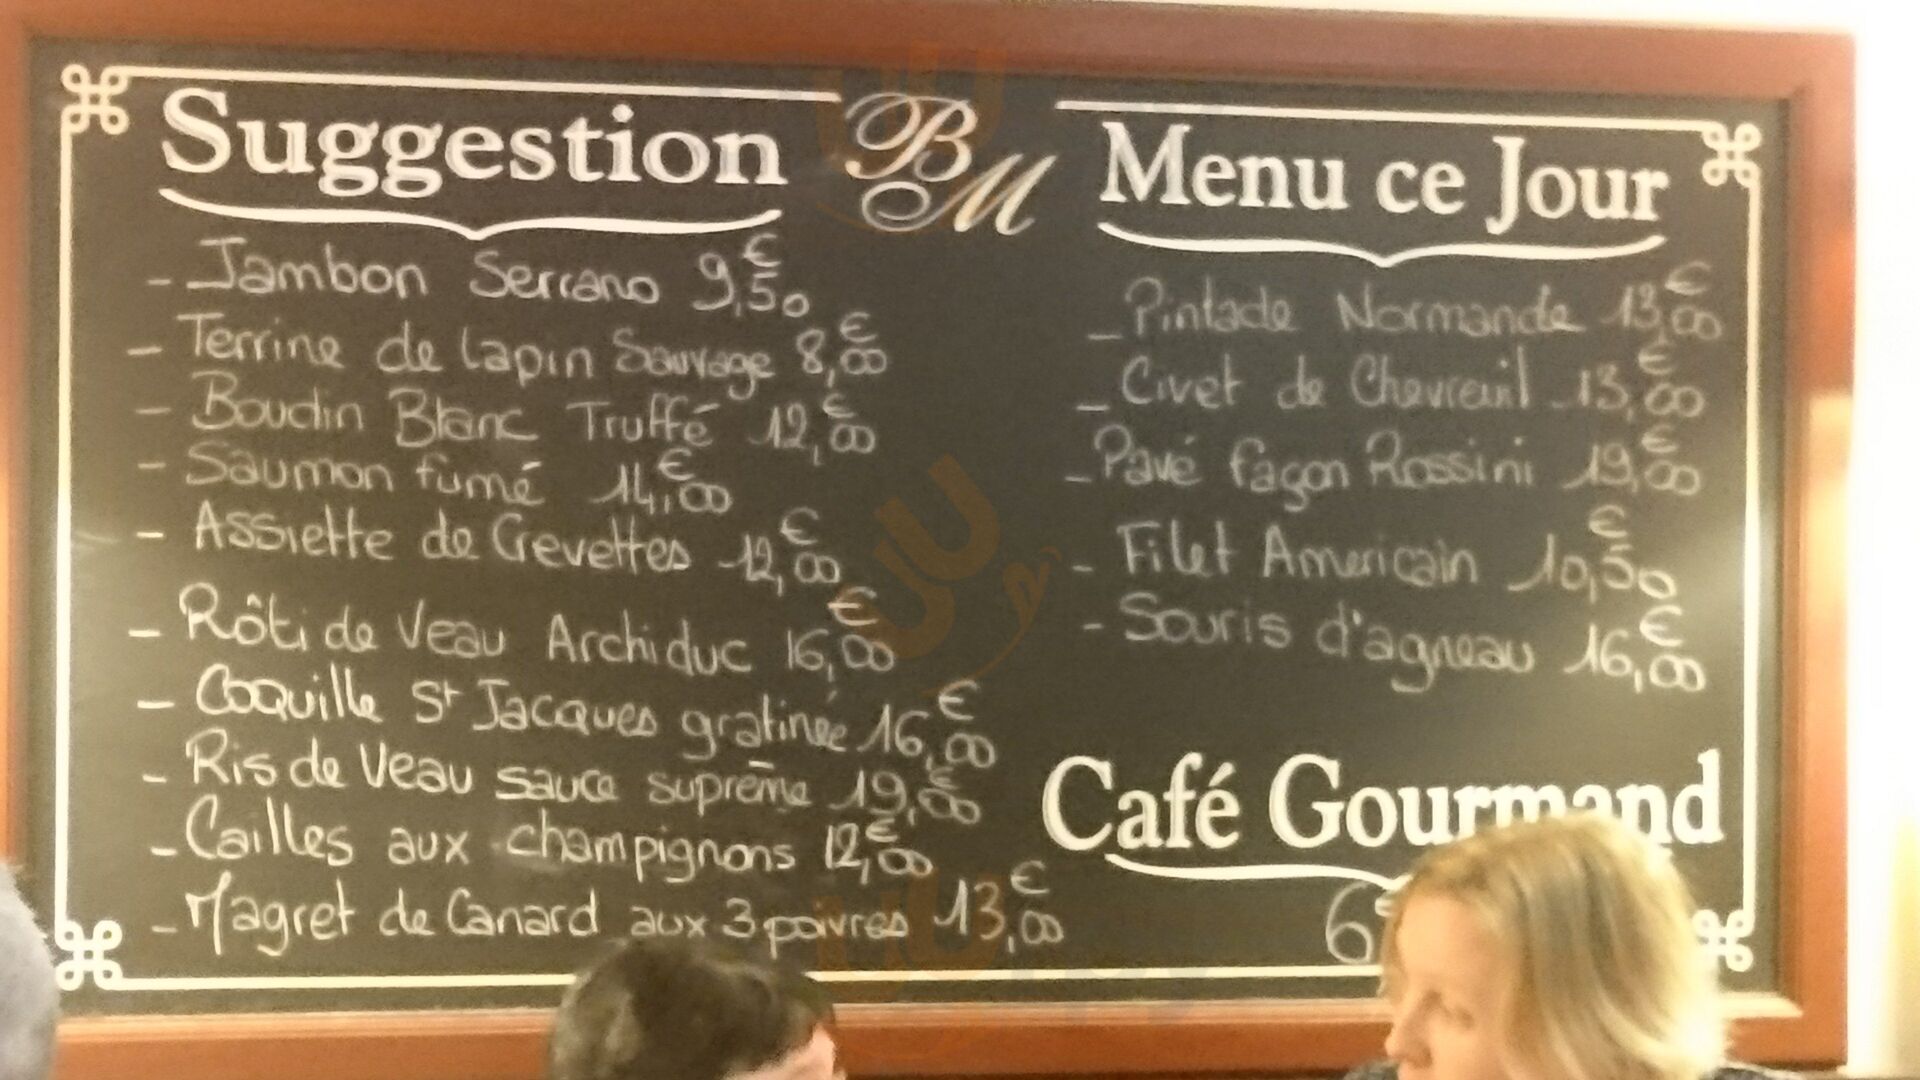 Suggestion
- Jambon Serrano 9,50 €
- Terrine de lapin Sauvage 8,00 €
- Boudin Blanc Truffé 12,00 €
- Saumon fumé 14,00 €
- Assiette de Crevettes 12,00 €
- Rôti de Veau Archiduc 16,00 €
- Coquille St Jacques gratinée 16,00 €
- Ris de Veau sauce suprême 19,00 €
- Cailles aux champignons 12,00 €
- Magret de Canard aux 3 poivres 13,00 €
BM
Menu ce Jour
- Pintade Normande 13,00 €
- Civet de Chevreuil 13,00 €
- Pavé façon Rossini 19,00 €
- Filet Americain 10,50 €
- Souris d'agneau 16,00 €
Café Gourmand
6